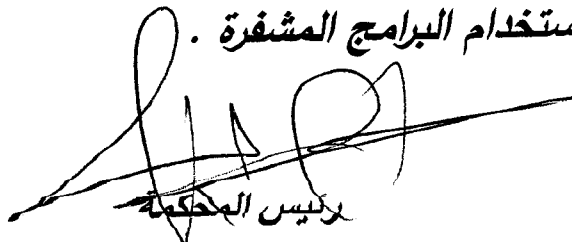 ستخدام البرامج المشفرة .
رئيس المحكمة